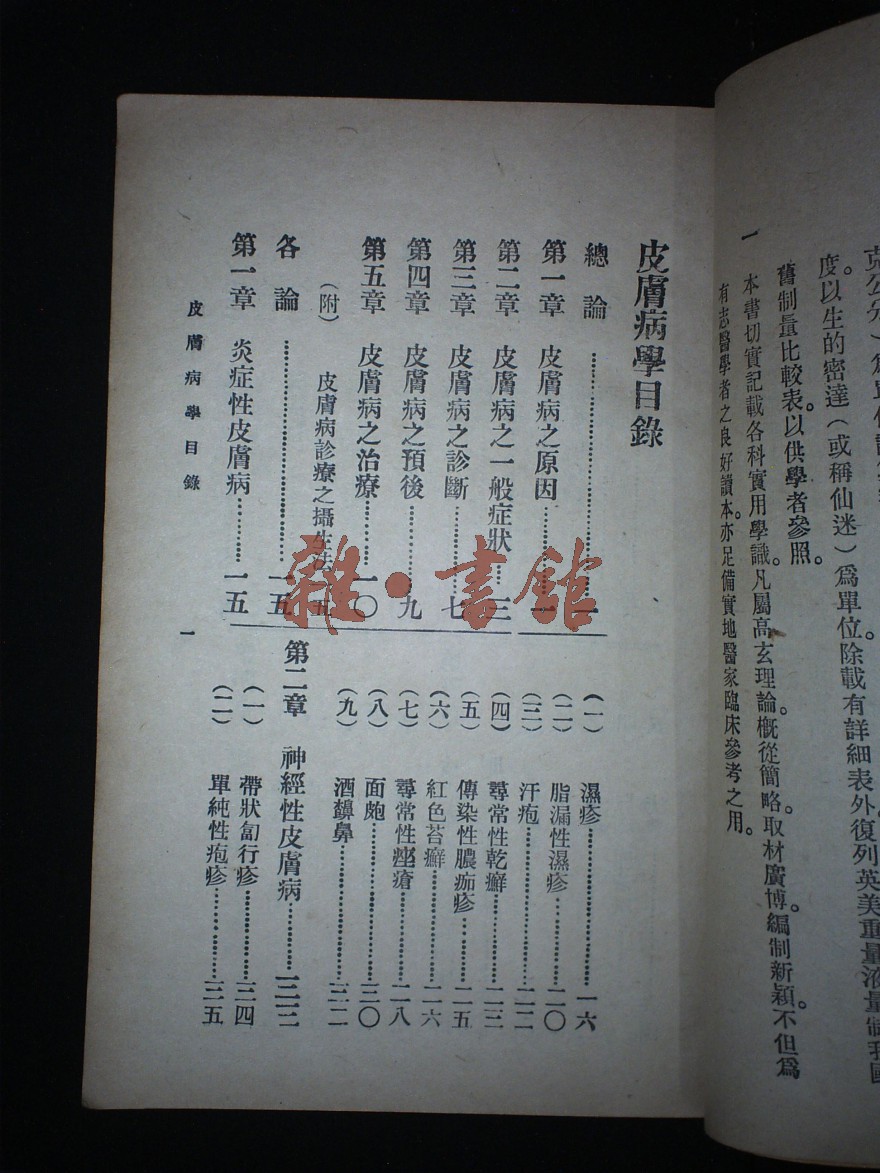 克公分）爲單位
度。以生的密達（或稱仙迷）爲單位除載有詳細表外復列英美重量液量制我國
舊制量比較表。以供學者參照。
一　本書切實記載各科實用學識。凡屬高玄理論。概從簡略。取材廣博。編制新穎。不但爲
有志醫學者之良好讀本。亦足備實地醫家臨床參考之用。
皮膚病學目錄
總論…………一
第一章　皮膚病之原因…………一
第二章　皮膚病之一般症狀…………三
第三章　皮膚病之診斷…………七
第四章　皮膚病之預後…………九
第五章　皮膚病之治療…………一〇
（附）　皮膚病診療之攝生法…五
各論…………一五
第一章　炎症性皮膚病…………一五
（一）　濕疹…………一六
（二）　脂漏性濕疹…………二〇
（三）　汗疱…………二二
（四）　尋常性乾癬…………二三
（五）　傳染性膿痂疹…………二五
（六）　紅色苔癬…………二六
（七）　尋常性痤瘡…………二八
（八）　面皰…………三〇
（九）　酒齄鼻…………三二
第二章　神經性皮膚病…………三三
（一）　帶狀匐行疹…………三四
（二）　單純性疱疹…………三五
皮膚病學目錄
一
雜·書館